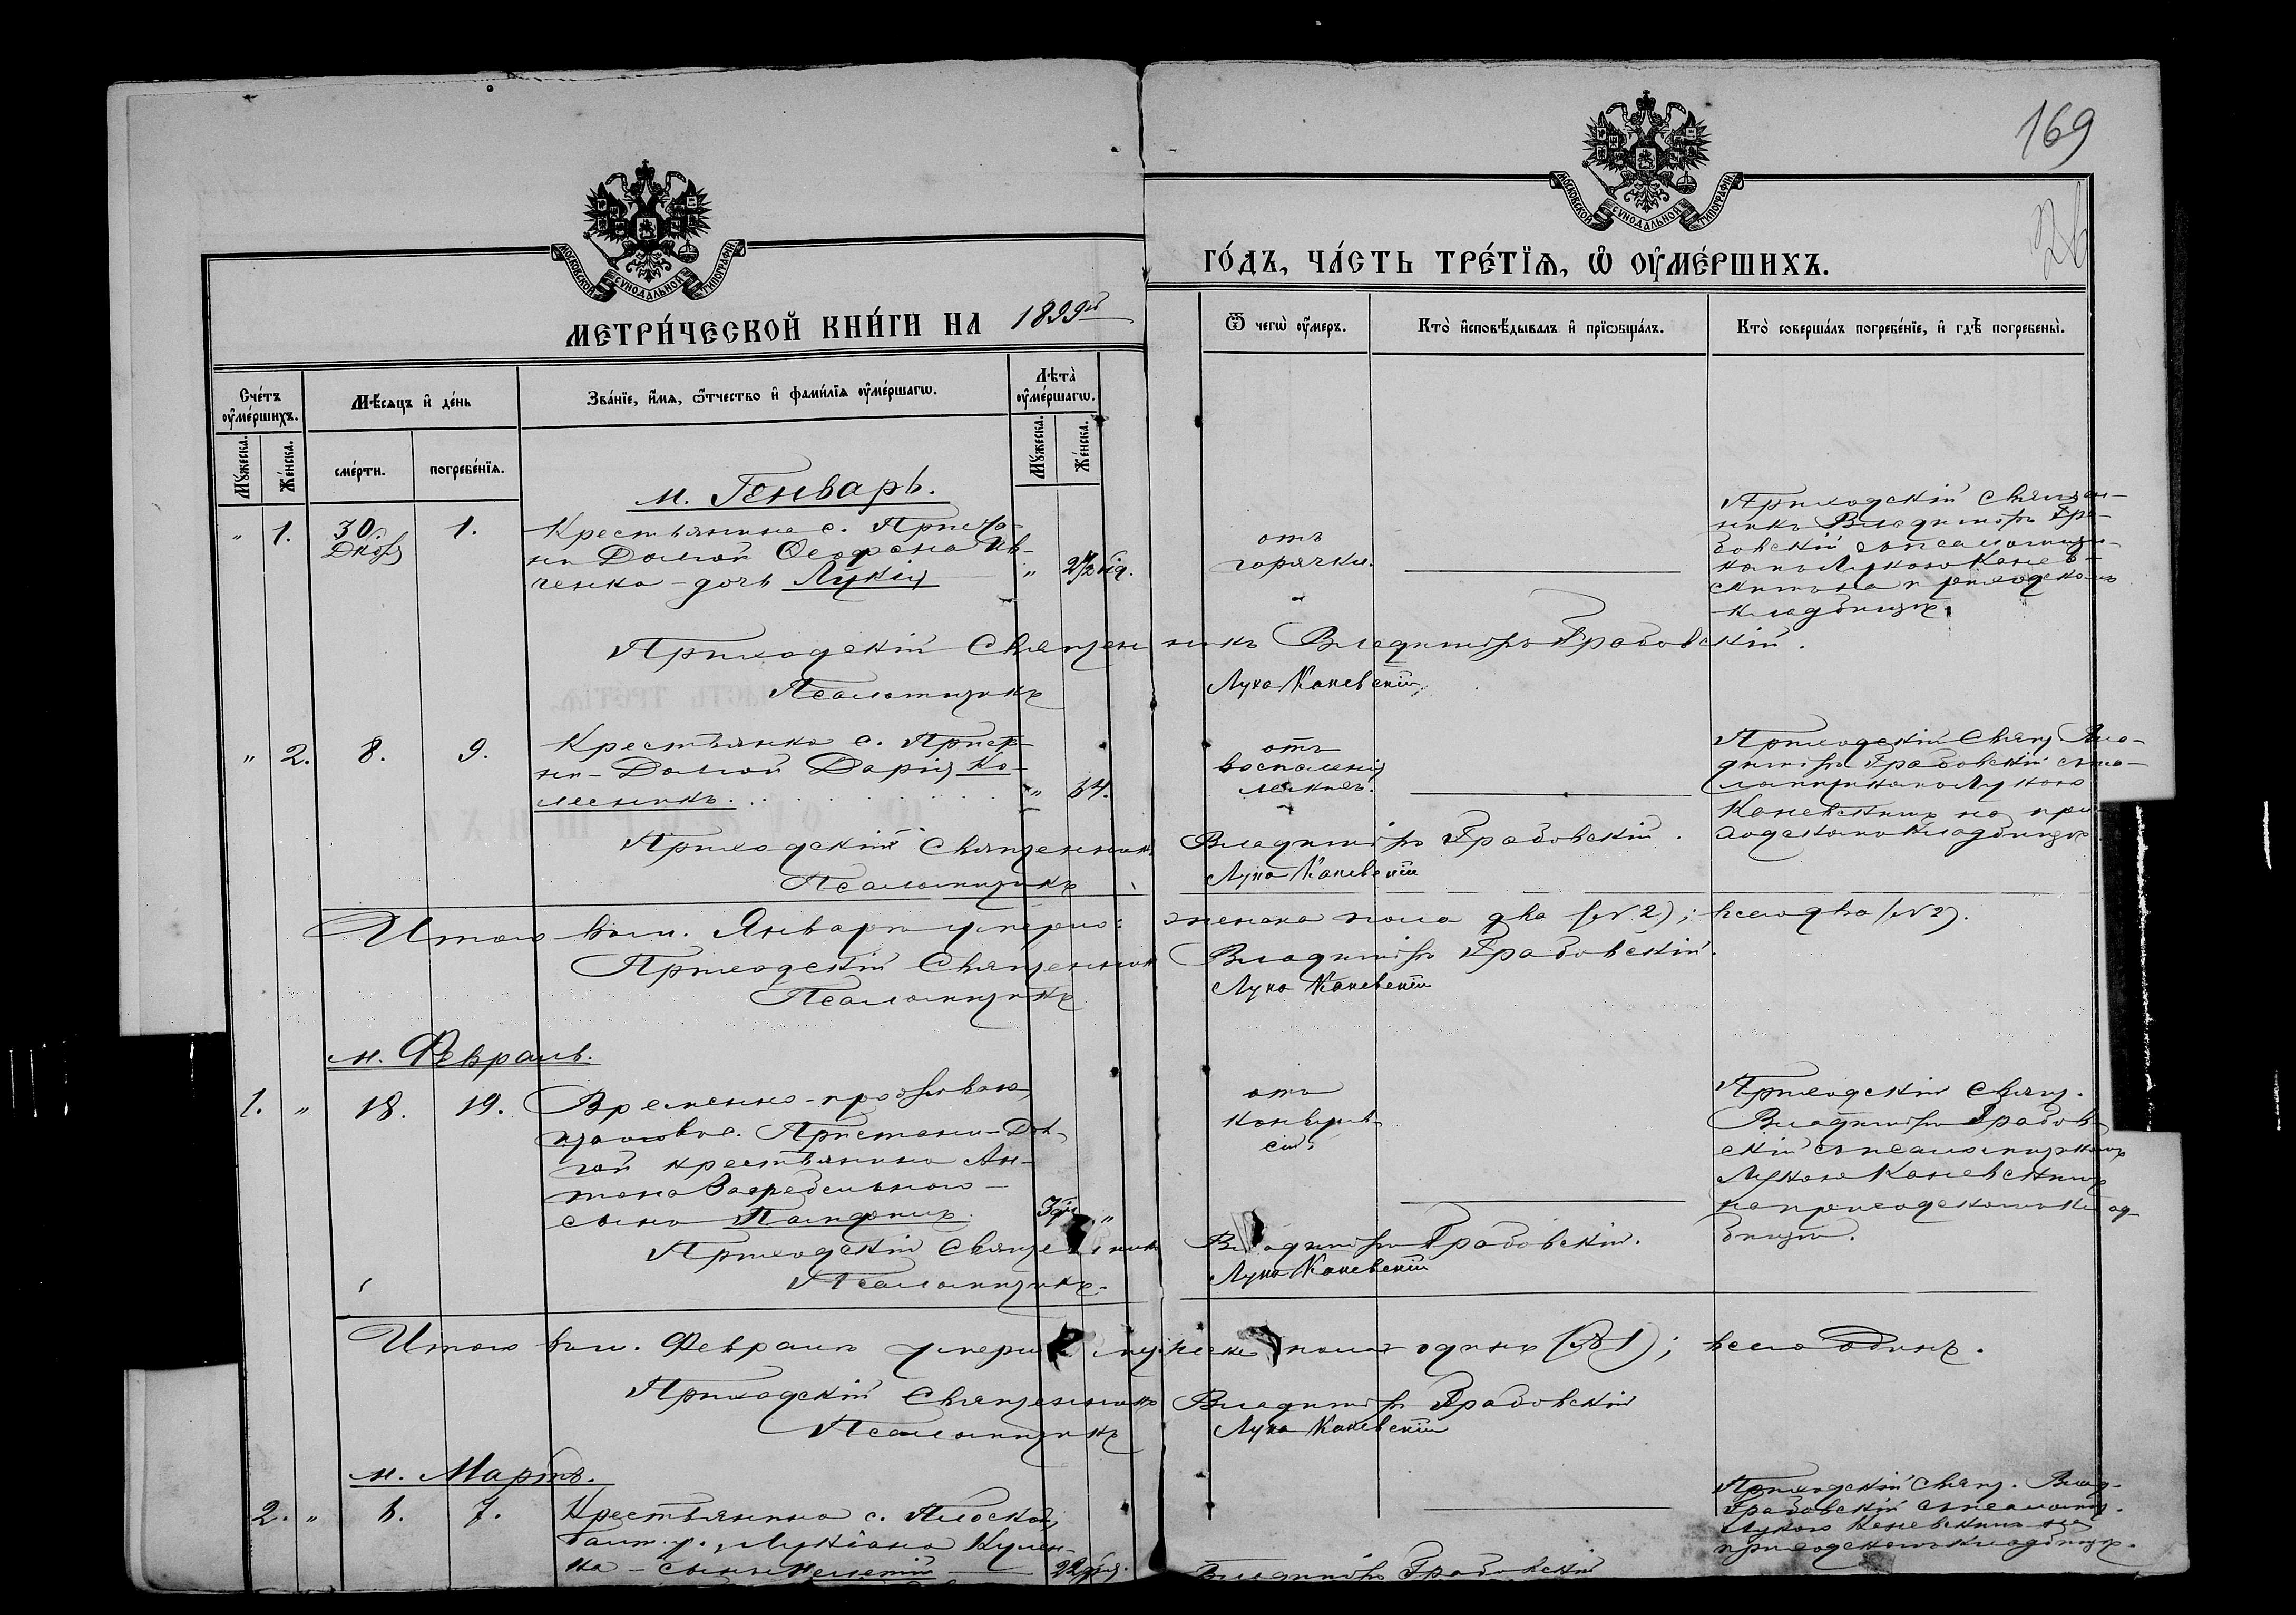 169
МОСКОВСКОЙ СѴНОДАЛЬНОЙ ТИПОГРАФІИ
МОСКОВСКОЙ СѴНОДАЛЬНОЙ ТИПОГРАФІИ
МЕТРИ́ЧЕСКОЙ КНИ́ГИ НА 1899й
ГО́ДЪ, ЧА́СТЬ ТРЕ́ТЇѦ, Ѡ҆ ОУ҆МЕ́РШИХЪ.
Сче́тъ оу҆ме́ршихъ.
Мꙋ́жеска.
Же́нска.
Мѣ́сѧцъ и҆ де́нь
сме́рти.
погребе́нїѧ.
Зва́нїе, и҆́мѧ, ѻ҆́тчество и҆ фами́лїѧ оу҆ме́ршагѡ.
Лѣ́та оу҆ме́ршагѡ.
Мꙋ́жеска.
Же́нска.
Ѿ чегѡ̀ оу҆́меръ.
Кто̀ и҆сповѣ́дывалъ и҆ прїѡбща́лъ.
Кто̀ соверша́лъ погребе́нїе, и҆ гдѣ̀ погребены̀.
м. Генварь.
" 1. 30 Дкбря 1.
Крестьянина с.
Долгой Ѳеофана Ив-
ченка - дочь Лукія
" 2½ год.
отъ
горячки.
Приходскій Священ-
никъ Владиміръ Гра-
бовскій съ псаломщи-
комъ Лукою Канев-
скимъ на приходскомъ
кладбищѣ.
Приходскій Священникъ Владиміръ Грабовскій.
Псаломщикъ Лука Каневскій
" 2. 8. 9.
Крестьянка с. Приста-
ни-Долгой Дарія Ко-
лесникъ.
" 64.
отъ
воспаленія
легкихъ.
Приходскій Свящ. Вла-
диміръ Грабовскій съ пса-
ломщикомъ Лукою
Каневскимъ на при-
ходскомъ кладбищѣ
Приходскій Священникъ Владиміръ Грабовскій.
Псаломщикъ Лука Каневскій
Итого въ м. Январѣ умерло: женска пола два (№ 2); всего два (№ 2).
Приходскій Священникъ Владиміръ Грабовскій.
Псаломщикъ Лука Каневскій
м. Февраль.
1. " 18. 19.
Временно-проживаю-
щаго въ с. Пристани-Дол-
гой крестьянина Ан-
тона
сынъ
"
отъ
конвуль-
сій.
Приходскій Свящ.
Владиміръ Грабов-
скій съ псаломщикомъ
Лукою Каневскимъ
на приходскомъ клад-
бищѣ.
Приходскій Священникъ Владиміръ Грабовскій.
Псаломщикъ Лука Каневскій
Итого въ м. Февралѣ умерло мужеска пола одинъ (№ 1); всего одинъ.
Приходскій Священникъ Владиміръ Грабовскій
Псаломщикъ Лука Каневскій
м. Мартъ.
2. " 6. 7.
Крестьянина с. Плоской,
Балт. у., Лукіана
ка - сынъ
22 дня.
Приходскій Свящ. Влад.
Грабовскій съ псаломщ.
Лукою Каневскимъ на
приходскомъ кладбищѣ.
Владиміръ Грабовскій